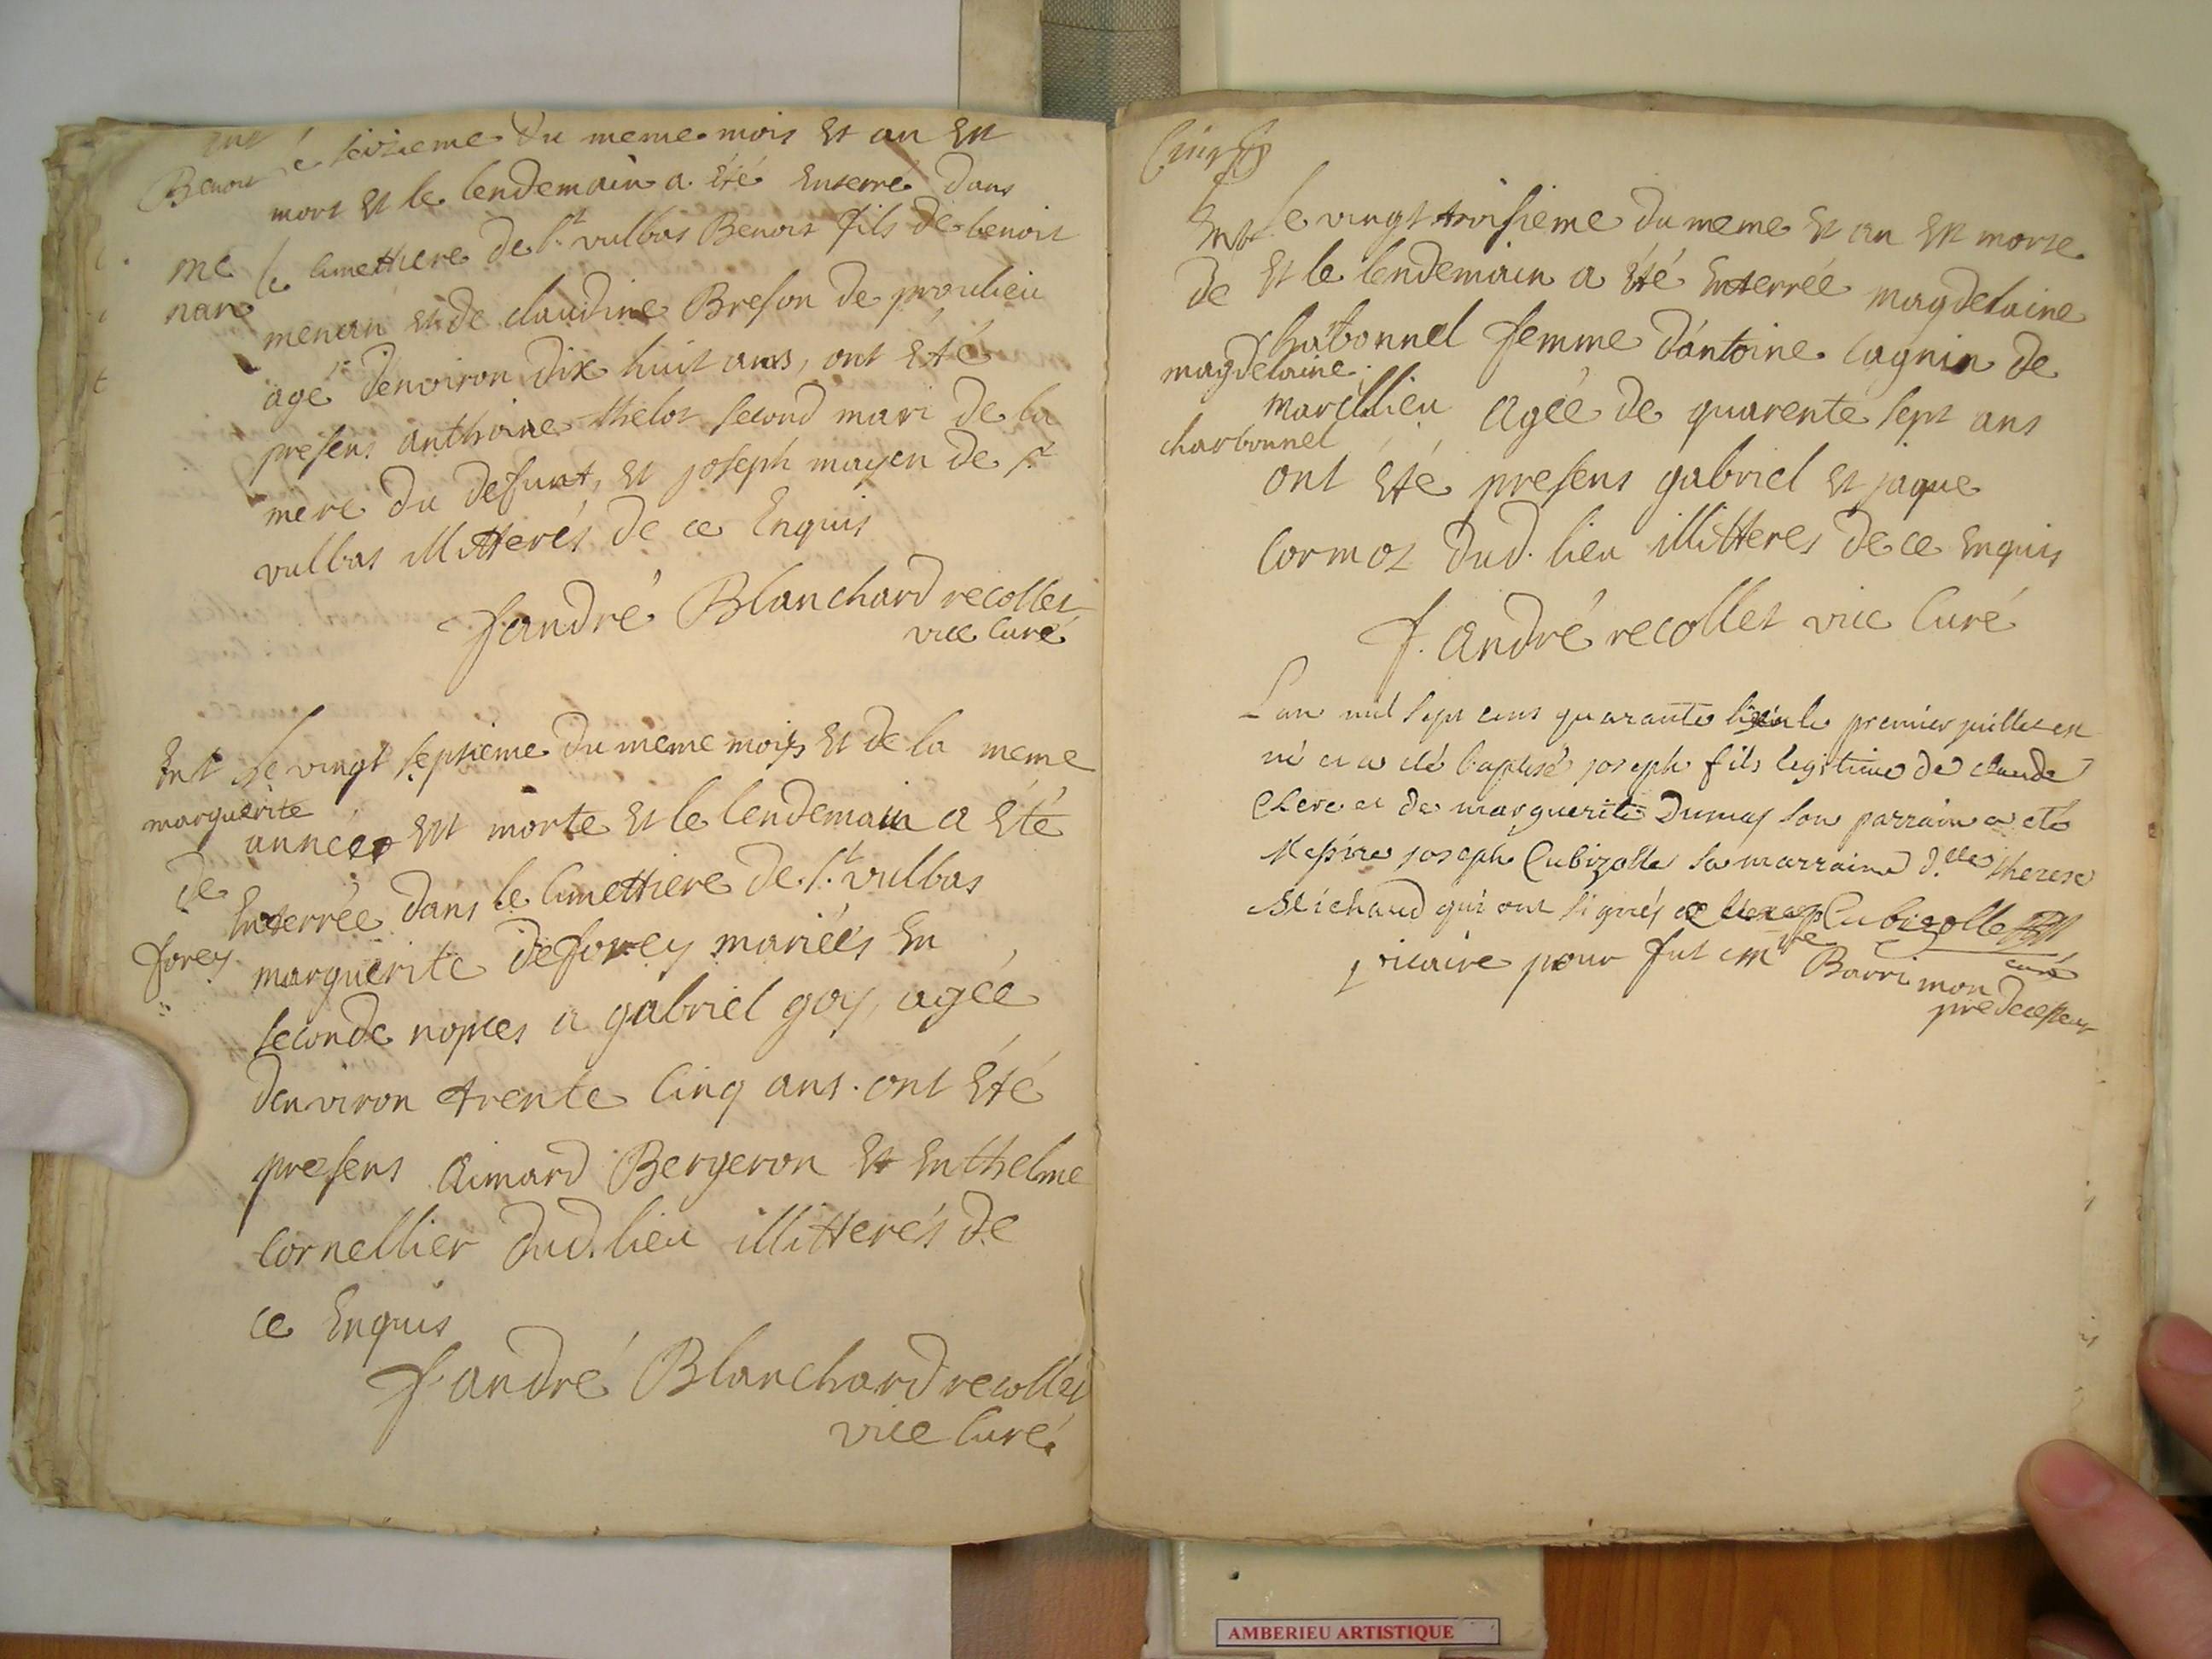 Ent
Benoit
me
nan
le seizieme du meme mois Et an Est
mort Et le lendemain a Eté Enterré dans
le Cimettiere de st vulbas Benoit fils de benoit
menan et de claudine Breson de proulieu
agé d'environ dix huit ans, ont Eté
presens anthoine thelot second mari de la
mere du defunt, Et joseph mayen de st
vulbas illitterés de ce Enquis
f. andré Blanchard recollet
vice Curé
Ent
marguerite
de
forey
le vingt septieme du meme mois Et de la meme
année Est morte Et le lendemain a Eté
Enterrée dans le Cimettiere de st vulbas
marguerite de forey mariées En
seconde nopces a gabriel goy, agée
d'environ trente Cinq ans. ont Eté
presens aimard Bergeron Et Enthelme
Cornellier dud. lieu illitterés de
ce Enquis
f. andré Blanchard recollet
vice Curé
Ent
de
magdelaine
charbonnel
le vingt troisieme du meme Et an Est morte
Et le lendemain a Eté Enterrée magdelaine
Charbonnel femme d'antoine Cagnin de
marcillieu agée de quarente sept ans
ont Eté presens gabriel Et jaque
Cormoz dud. lieu illitteres de ce Enquis
f. andré recollet vice Curé
L'an mil sept cens quarante le premier juillet est
né et a eté baptisé joseph fils legitime de claude
Clerc et de marguerite Dumas son parrain a eté
Messire joseph Cubizolle sa marraine d.lle therese
Michaud qui ont signés Cubizolle
curé
vicaire pour fut mre Barri mon
predecesseur
AMBERIEU ARTISTIQUE